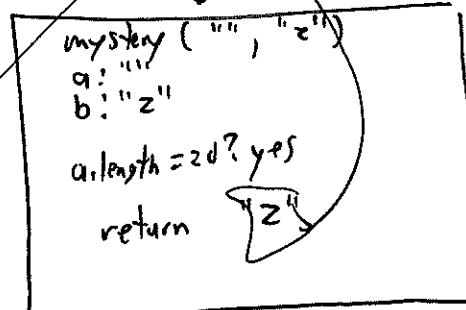 mystery ("", "z")
a: ""
b: "z"
a.length == 0? yes
return "z"